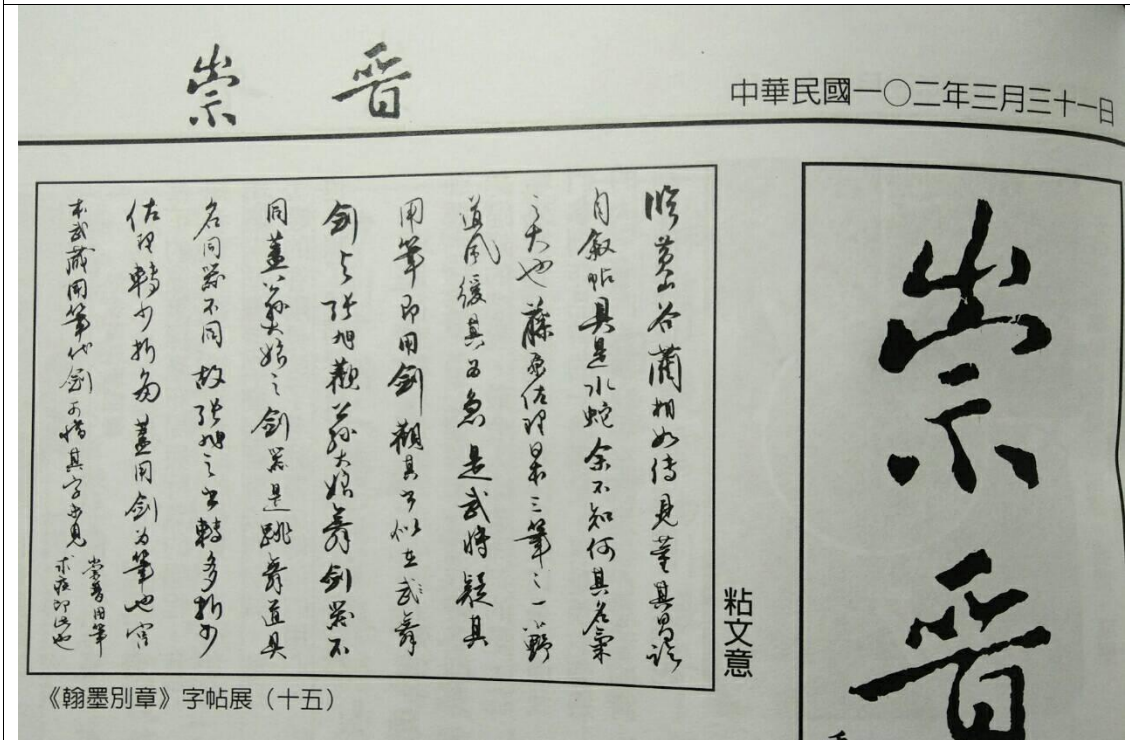 崇 晉
中華民國一〇二年三月三十一日
崇晉
臨黃山谷藺相如傳見董其昌
自敘帖真是水蛇余不知何其名氣
之大也藤原佐理日本三筆之一小野
道風緩其書急是武將疑其
用筆即用劍觀其書似在武舞
劍與張旭觀公孫大娘舞劍器不
同蓋公孫大娘之劍器是跳舞道具
名同器不同故張旭之書轉多折少
佐理轉少折多蓋用劍為筆也宮
本武藏用筆代劍可惜其字少見
崇晉用筆
求疾即此也
粘文意
《翰墨別章》字帖展（十五）